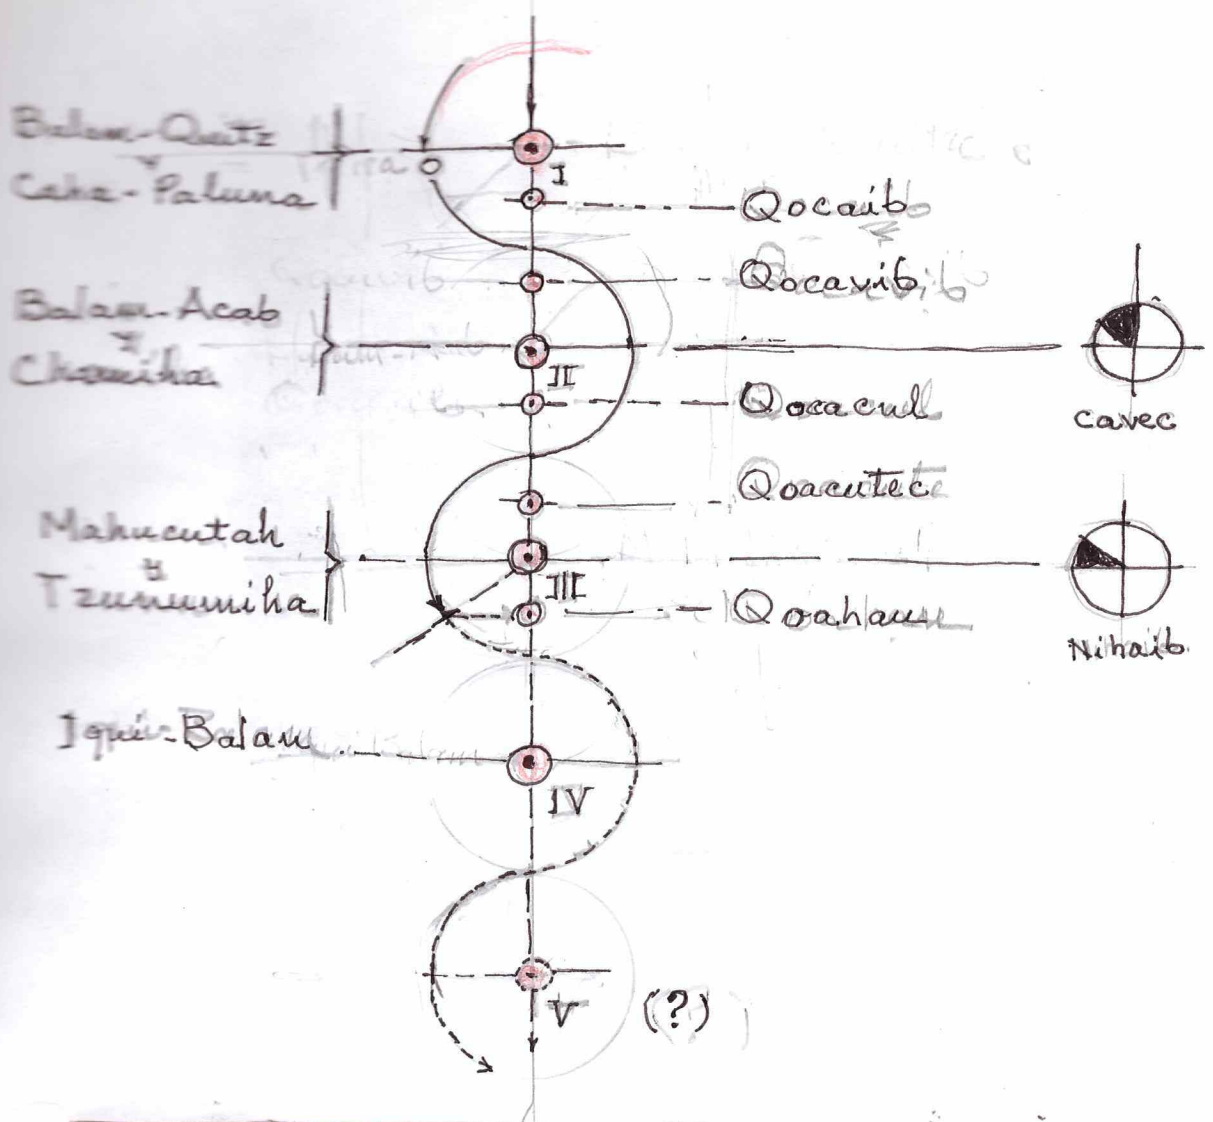 Balam-Quitz
y
Caha-Paluma
I
Qocaib
Qocavib
Balam-Acab
y
Chomiha
II
Qocacul
cavec
Qoacutec
Mahucutah
y
Tzunumiha
III
Qoahau
Nihaib
Iqui-Balam
IV
V
(?)